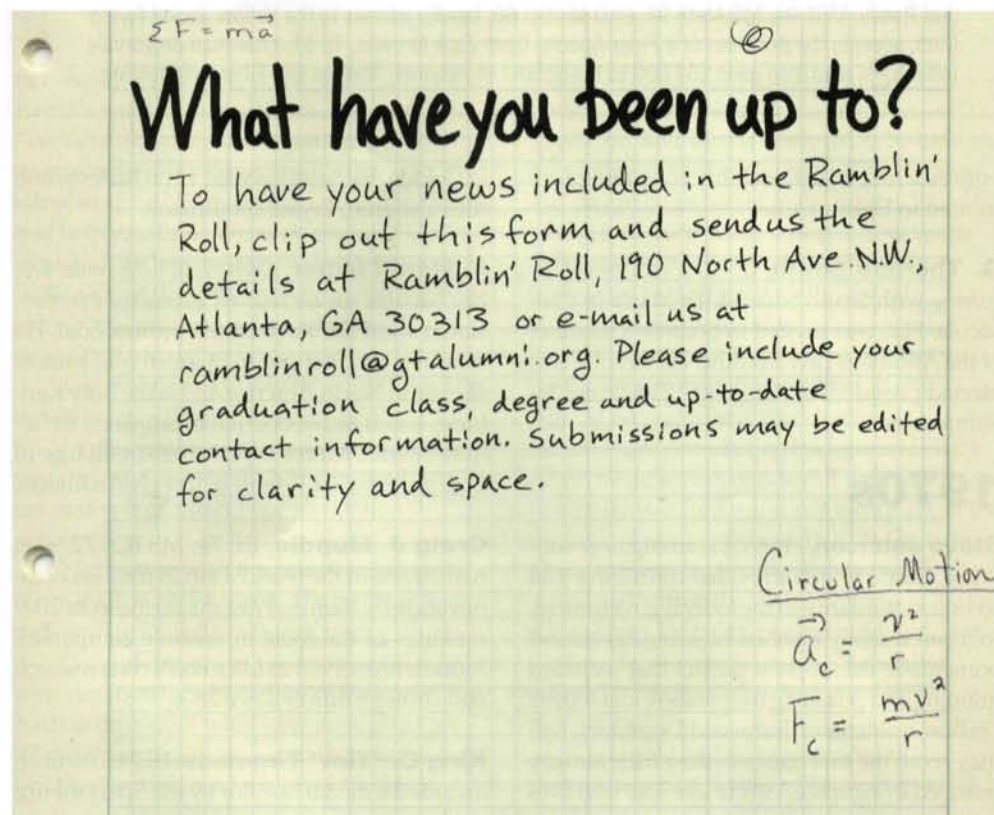 ΣF = ma⃗
What have you been up to?
To have your news included in the Ramblin'
Roll, clip out this form and send us the
details at Ramblin' Roll, 190 North Ave. N.W.,
Atlanta, GA 30313 or e-mail us at
ramblinroll@gtalumni.org. Please include your
graduation class, degree and up-to-date
contact information. Submissions may be edited
for clarity and space.
Circular Motion
a⃗c = v²/r
Fc = mv²/r